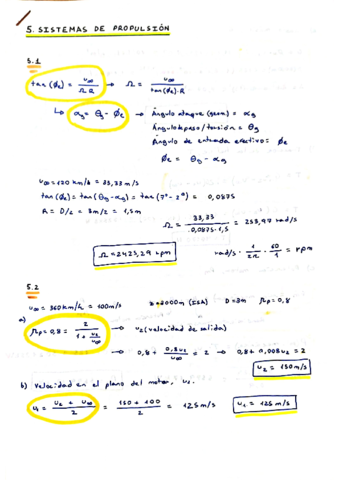 5. SISTEMAS DE PROPULSIÓN
5.1
tan(φe) = u∞ / Ω·R → Ω = u∞ / tan(φe)·R
↳ αg = θg - φe → Ángulo ataque (geom) = αg
Ángulo de paso/torsión = θg
Ángulo de entrada efectivo = φe
φe = θg - αg
u∞ = 120 km/h = 33,33 m/s
tan(φe) = tan(θg - αg) = tan(7º - 2º) = 0,0875
R = D/2 = 3m/2 = 1,5m
Ω = 33,33 / 0,0875·1,5 = 253,97 rad/s
Ω = 2425,29 rpm
rad/s · 1/2π · 60/1 = rpm
5.2
u∞ = 360 km/h = 100 m/s
z = 2000m (ISA) D = 3m ηp = 0,8
a) ηp = 0,8 = 2 / 1 + u2/u∞ → u2 (velocidad de salida)
→ 0,8 + 0,8u2/u∞ = 2 → 0,8 + 0,008u2 = 2
u2 = 150 m/s
b) Velocidad en el plano del motor, u1.
u1 = u2 + u∞ / 2 = 150 + 100 / 2 = 125 m/s
u1 = 125 m/s